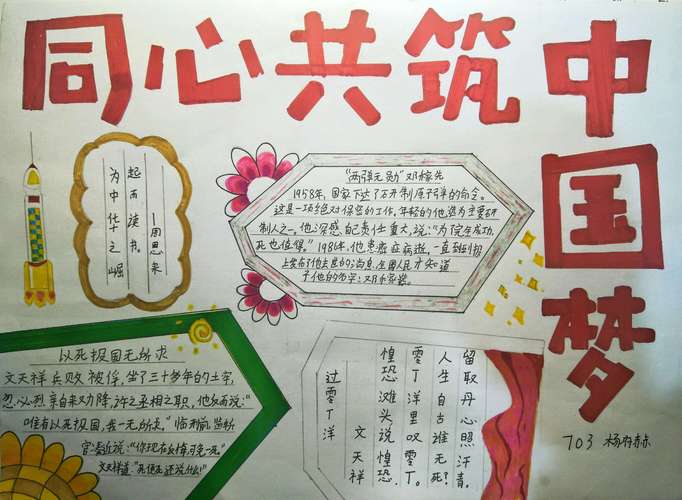 同心共筑中国梦
为中华之崛
起而读书。
——周恩来
“两弹元勋”邓稼先
1958年，国家下达了研制原子弹的命令。
这是一项绝对保密的工作，年轻的他，选为主要研
制人之一。他深感自己责任重大，说：“为了完年成功，
死也值得。”1986年，他患癌症病逝，一直到到报
上发布了他去世的消息，全国人民才知道
了他的名字：邓稼先。
以死报国无所求
文天祥兵败被俘，坐了三十多年的土牢，
忽必烈亲自来劝降，许之丞相之职，他反而说：“
唯有以死报国，我一无所求。”临刑前，监斩
官凑近说：“你现在反悔可免一死。”
文天祥道：“死便死还说什么！”
过零丁洋
文天祥
惶恐滩头说惶恐，
零丁洋里叹零丁。
人生自古谁无死？
留取丹心照汗青。
703